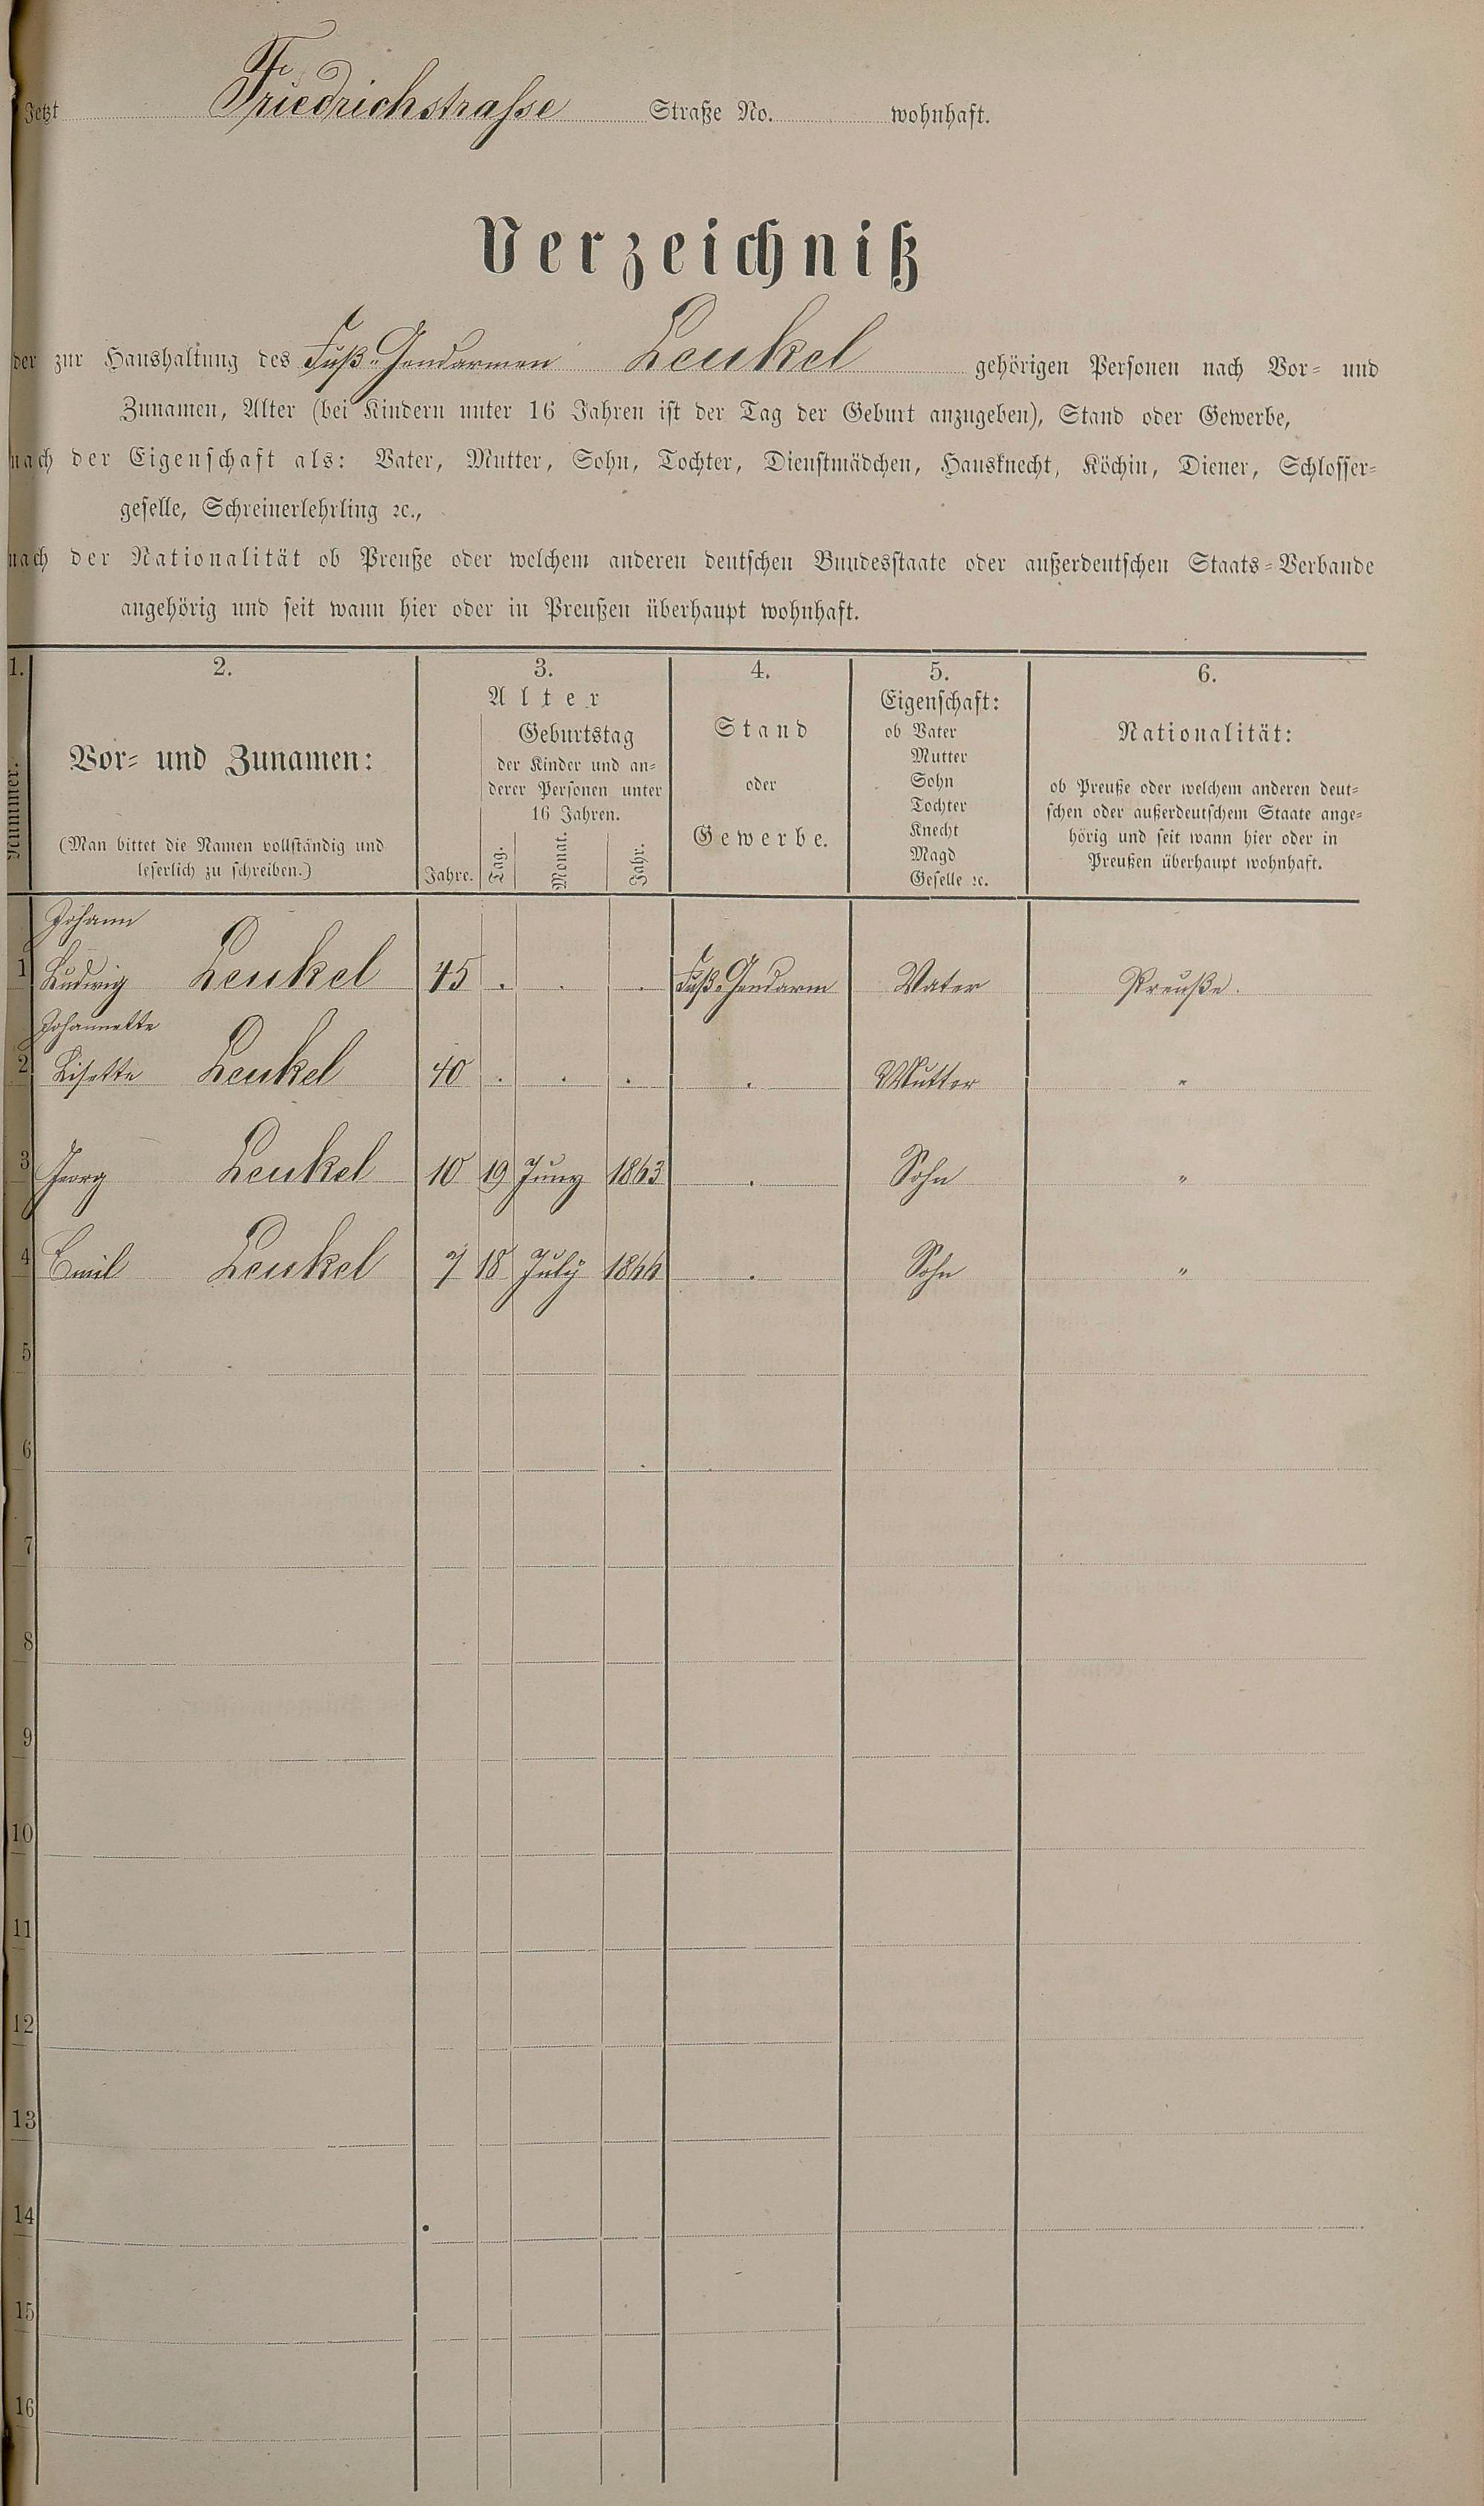 Jetzt Friedrichstrasse Straße No. wohnhaft.
Verzeichniß
der zur Haushaltung des Fuß-Gendarmen Leukel gehörigen Personen nach Vor- und
Zunamen, Alter (bei Kindern unter 16 Jahren ist der Tag der Geburt anzugeben), Stand oder Gewerbe,
nach der Eigenschaft als: Vater, Mutter, Sohn, Tochter, Dienstmädchen, Hausknecht, Köchin, Diener, Schlosser-
geselle, Schreinerlehrling ꝛc.,
nach der Nationalität ob Preuße oder welchem anderen deutschen Bundesstaate oder außerdeutschen Staats-Verbande
angehörig und seit wann hier oder in Preußen überhaupt wohnhaft.
1. 2. 3. 4. 5. 6.
Nummer.
Vor- und Zunamen:
(Man bittet die Namen vollständig und
leserlich zu schreiben.)
Alter
Jahre.
Geburtstag
der Kinder und an-
derer Personen unter
16 Jahren.
Tag. Monat. Jahr.
Stand
oder
Gewerbe.
Eigenschaft:
ob Vater
Mutter
Sohn
Tochter
Knecht
Magd
Geselle ꝛc.
Nationalität:
ob Preuße oder welchem anderen deut-
schen oder außerdeutschem Staate ange-
hörig und seit wann hier oder in
Preußen überhaupt wohnhaft.
Johann
1 Ludwig Leukel 45 . . . Fuß-Gendarm Vater Preuße.
Johannette
2 Lisette Leukel 40 . . . . Mutter "
3 Georg Leukel 10 19 Juny 1863 . Sohn "
4 Emil Leukel 7 18 July 1866 . Sohn "
5
6
7
8
9
10
11
12
13
14
15
16